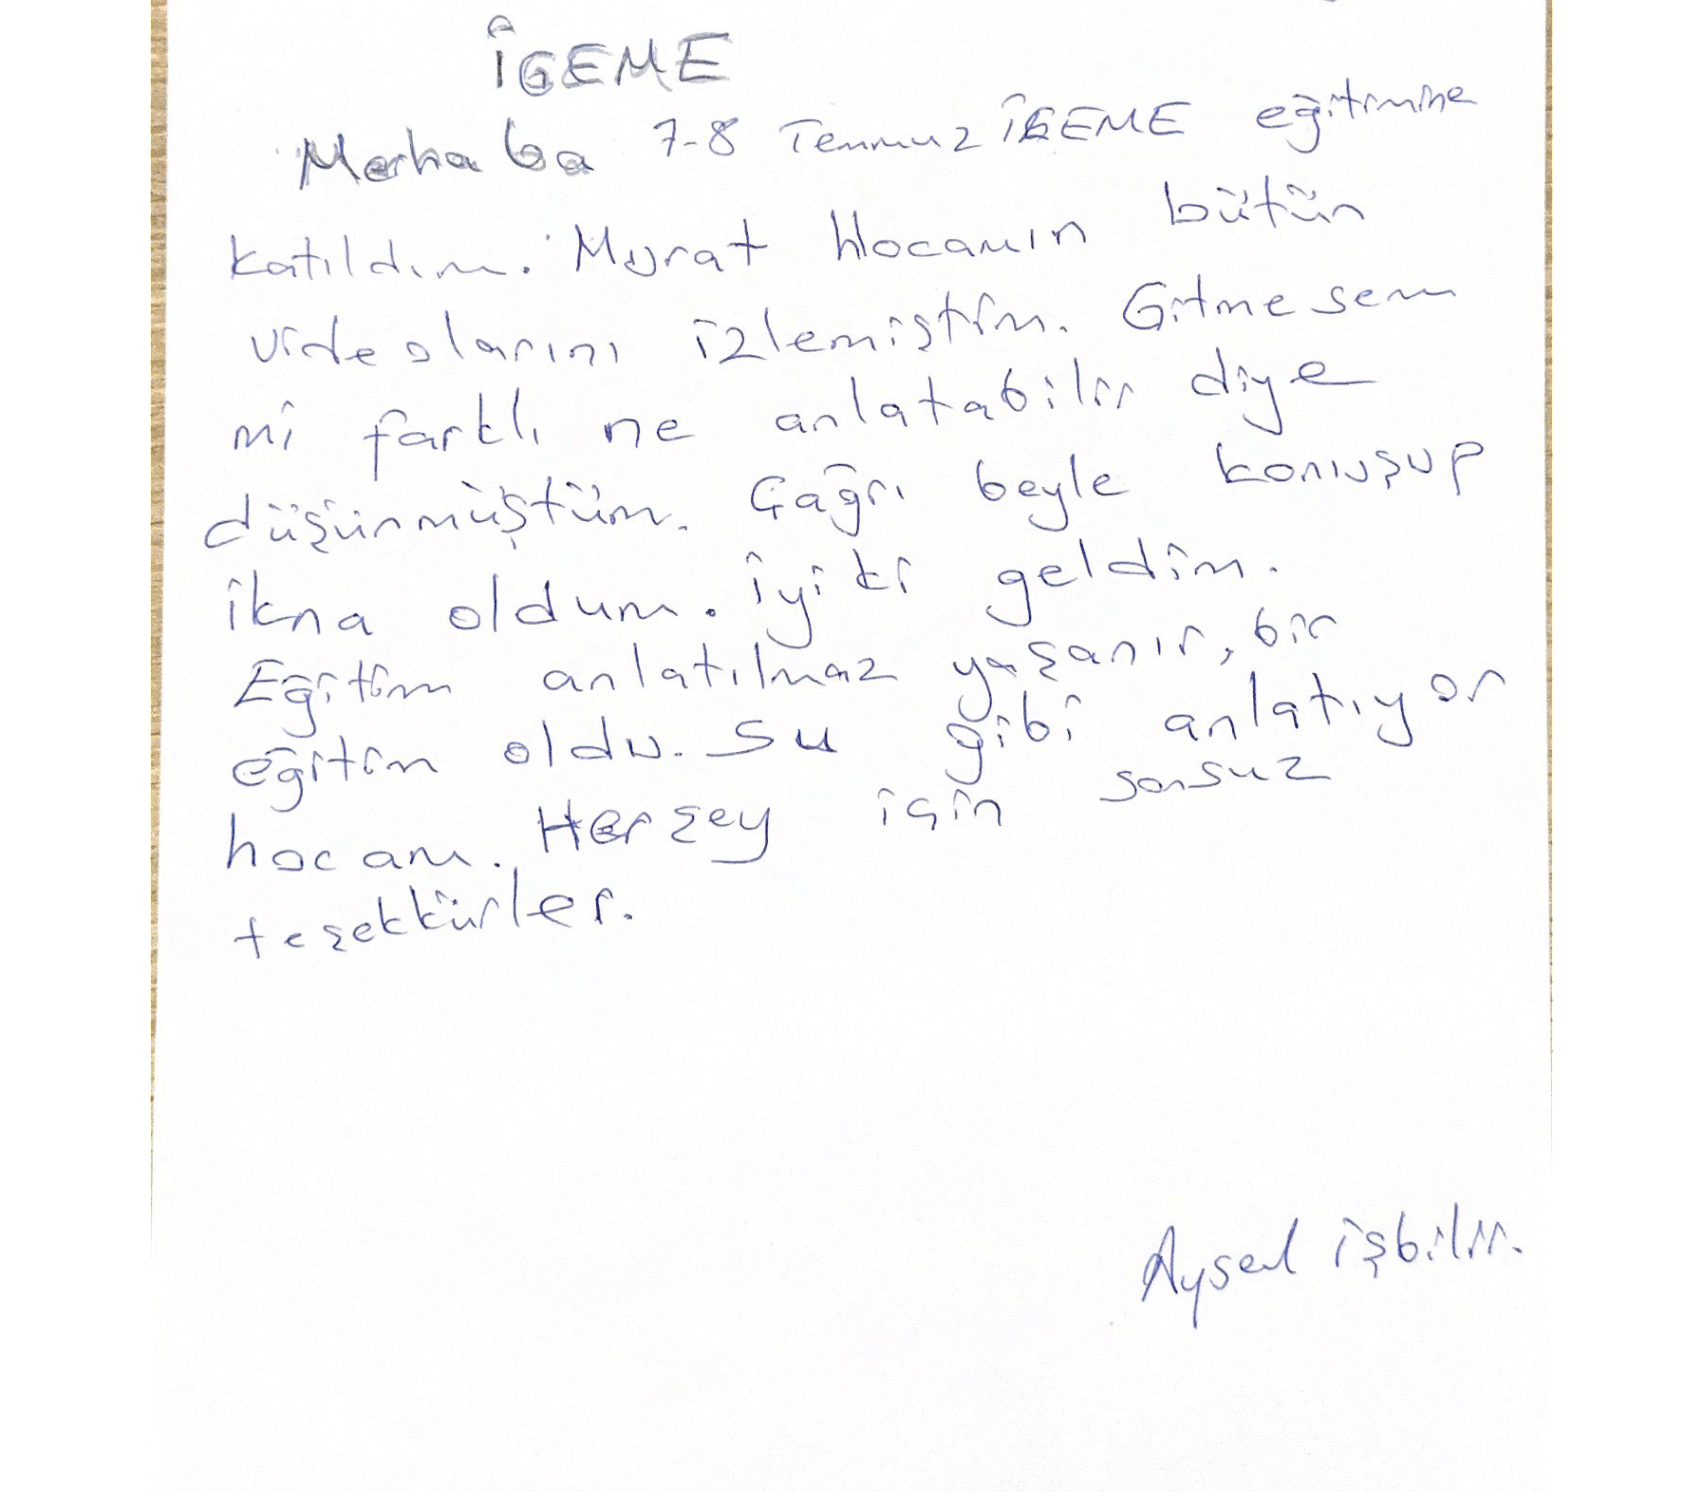 İGEME
Merhaba 7-8 Temmuz İGEME eğitimine
katıldım. Murat Hocamın bütün
videolarını izlemiştim. Gitmesem
mi farklı ne anlatabilir diye
düşünmüştüm. Çağrı beyle konuşup
ikna oldum. İyiki geldim.
Eğitim anlatılmaz yaşanır, bir
eğitim oldu. Su gibi anlatıyor
hocam. Herşey için sonsuz
teşekkürler.
Aysel işbilir.